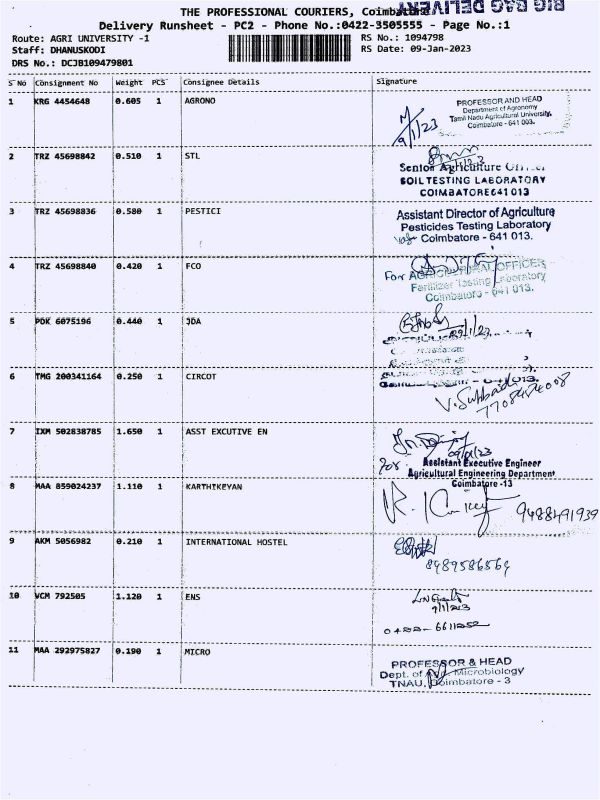 BIG BAG DELIVERY
THE PROFESSIONAL COURIERS, Coimbatore
Delivery Runsheet - PC2 - Phone No.:0422-3505555 - Page No.:1
Route: AGRI UNIVERSITY -1
RS No.: 1094798
Staff: DHANUSKODI
RS Date: 09-Jan-2023
DRS No.: DCJB109479801
S No Consignment No Weight PCS Consignee Details Signature
1 KRG 4454648 0.605 1 AGRONO
9/1/23
PROFESSOR AND HEAD
Department of Agronomy
Tamil Nadu Agricultural University,
Coimbatore - 641 003.
2 TRZ 45698842 0.510 1 STL
Senior Agriculture Officer
SOIL TESTING LABORATORY
COIMBATORE 641 013
3 TRZ 45698836 0.580 1 PESTICI
Assistant Director of Agriculture
Pesticides Testing Laboratory
Coimbatore - 641 013.
4 TRZ 45698840 0.420 1 FCO
For AGRICULTURAL OFFICER
Fertilizer Testing Laboratory
Coimbatore - 641 013.
5 PDK 6075196 0.440 1 JDA
6 TMG 200341164 0.250 1 CIRCOT
V. Subbaiah
7708424008
7 IXM 502838785 1.650 1 ASST EXCUTIVE EN
09/01/23
for Assistant Executive Engineer
Agricultural Engineering Department
Coimbatore -13
8 MAA 859024237 1.110 1 KARTHIKEYAN
9488491939
9 AKM 5056982 0.210 1 INTERNATIONAL HOSTEL
8489586564
10 VCM 792505 1.120 1 ENS
9/1/23
0422-6611252
11 MAA 292975827 0.190 1 MICRO
PROFESSOR & HEAD
Dept. of Agri. Microbiology
TNAU, Coimbatore - 3